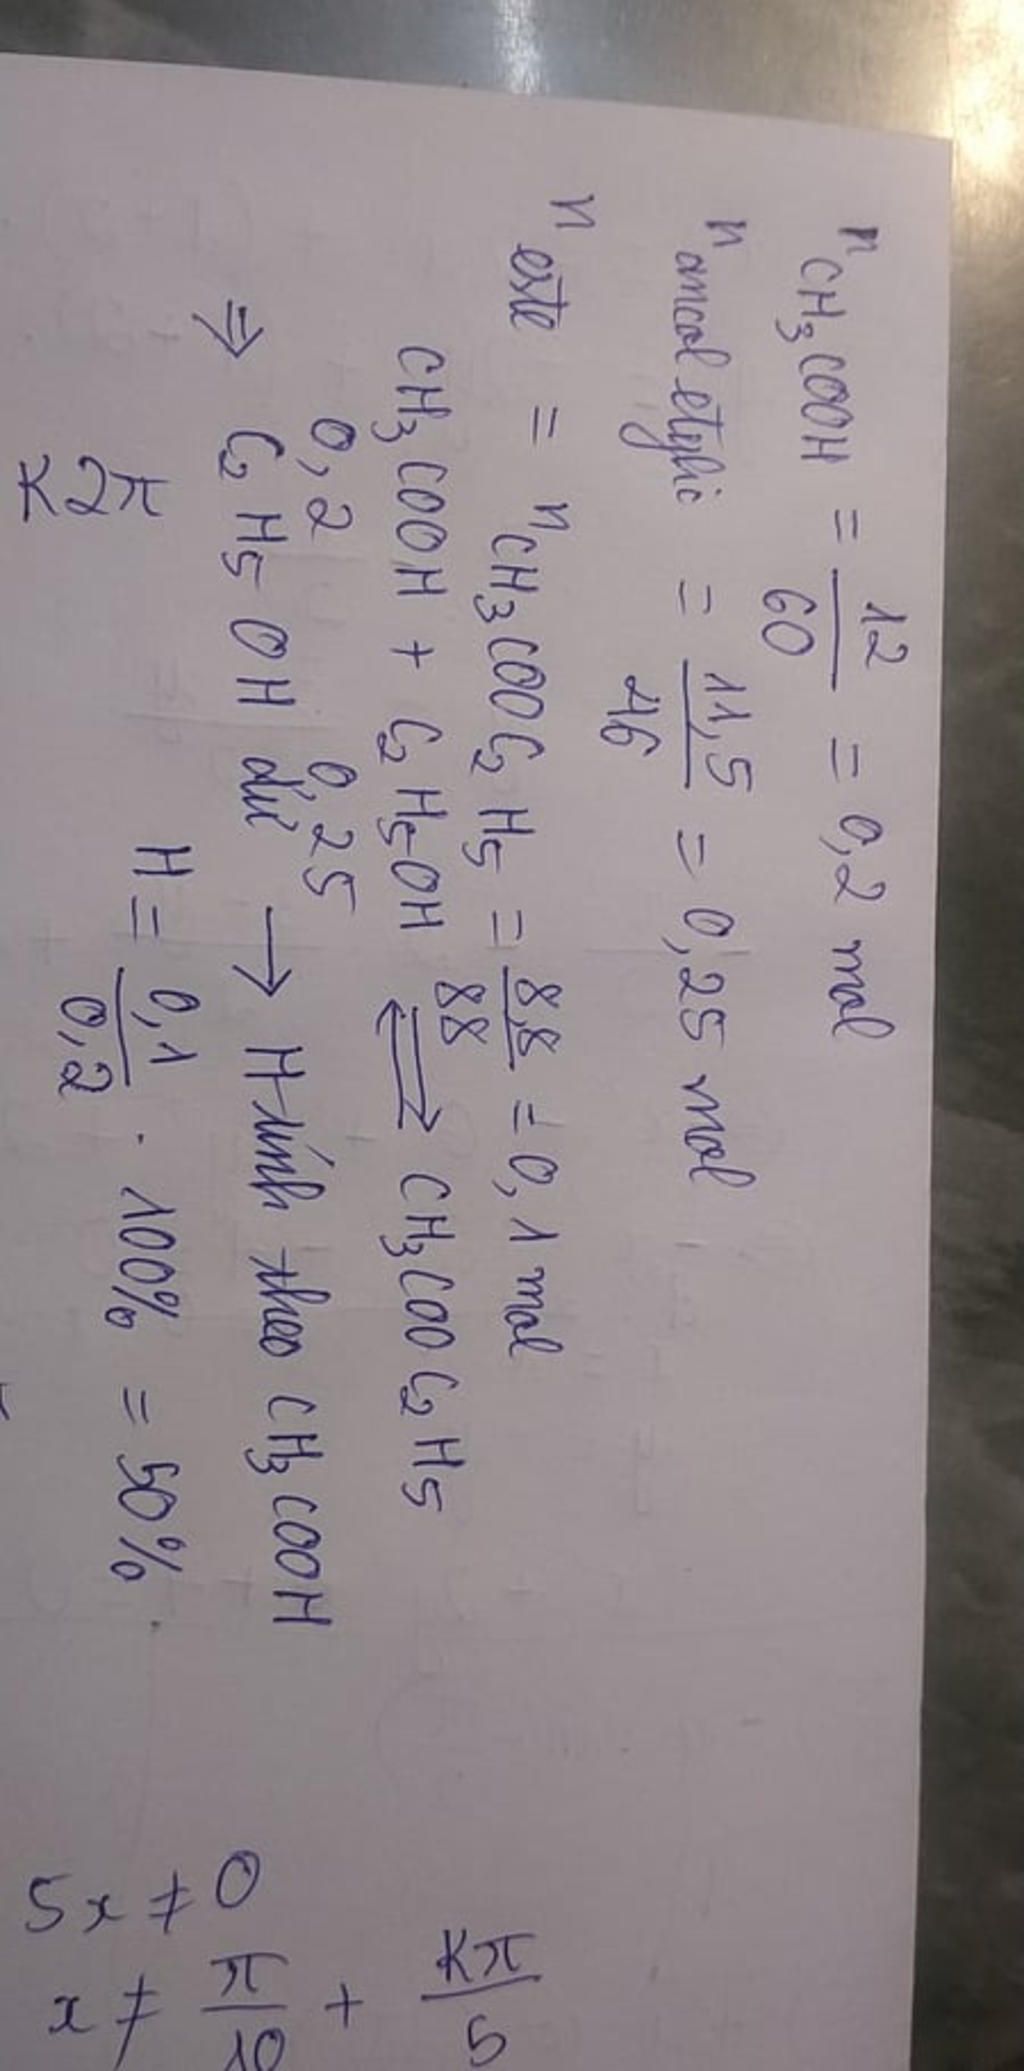 nCH3COOH = 12/60 = 0,2 mol
nancol etylic = 11,5/46 = 0,25 mol
neste = nCH3COOC2H5 = 8,8/88 = 0,1 mol
CH3COOH + C2H5OH ⇌ CH3COOC2H5
0,2 0,25
⇒ C2H5OH dư → H tính theo CH3COOH
H = 0,1/0,2 . 100% = 50%.
Kπ/5
5x ≠ 0
x ≠ π/10 +
K2π